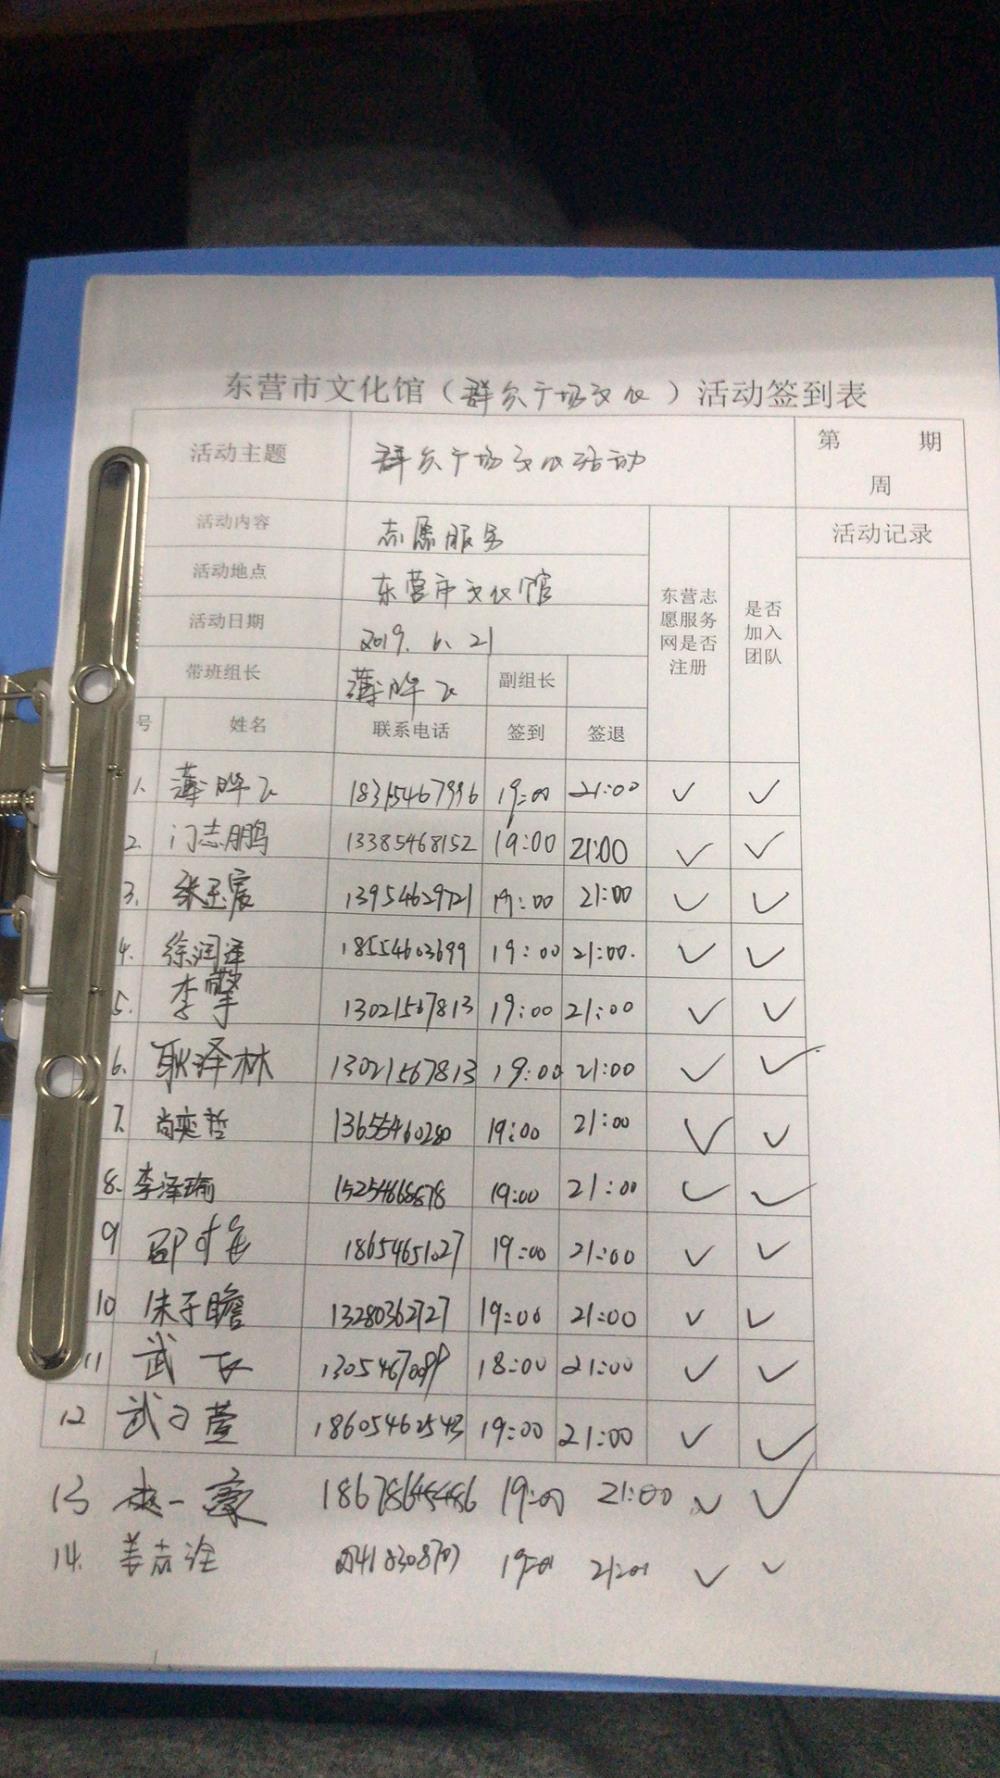 东营市文化馆（群众广场文化）活动签到表
活动主题 群众广场文化活动 第 期
周
活动内容 志愿服务 活动记录
活动地点 东营市文化馆
东营志愿服务网是否注册 是否加入团队
活动日期 2019. 6. 21
带班组长 薄晔飞 副组长
号 姓名 联系电话 签到 签退
1. 薄晔飞 18315467996 19:00 21:00 ✓ ✓
2. 门志鹏 13385468152 19:00 21:00 ✓ ✓
3. 张玉宸 13954629721 19:00 21:00 ✓ ✓
4. 徐润泽 18554603699 19:00 21:00. ✓ ✓
5. 李擎 13021567813 19:00 21:00 ✓ ✓
6. 耿泽林 13021567813 19:00 21:00 ✓ ✓
7. 尚奕哲 19:00 21:00 ✓ ✓
8. 李泽瑜 15254668678 19:00 21:00 ✓ ✓
9 邵 18654651027 19:00 21:00 ✓ ✓
10 朱子瞻 13280362727 19:00 21:00 ✓ ✓
11 武 18:00 21:00 ✓ ✓
12 武子萱 18605462543 19:00 21:00 ✓ ✓
13 赵一豪 19:00 21:00 ✓ ✓
14. 姜志 19:00 21:00 ✓ ✓